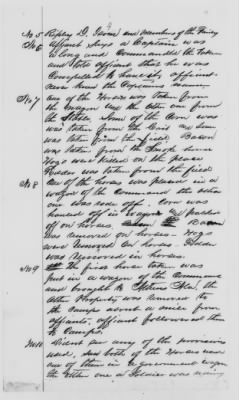 No 5 Ripley D, and members of the Family
No 6 Affiant Says a Captain was
along and Commanded the Token
and told affiant that he was
Compelled to have it, affiant
never knew the Captains name
No 7 One of the Horses was taken from
the wagon and the other one from
the Stable, Some of the Corn was
was taken from the Crib and Some
was taken from the field Bacon
was taken from the Smoke house
Hogs were Killed on the place
Fodder was taken from the field
No 8 One of the horses was placed in a
wagon of the Command the other
one was rode off. Corn was
hauled off in wagons and packed
off on horses Bacon
was removed on horses. Hogs
were removed on horses. Fodder
was removed on horses.
No 9 The first horse taken was
put in a wagon of the Command
and brought to the
other Property was removed to
the Camps about a mile from
affiants, affiant followed them
to Camps.
No 10 Did not see any of the provisions
used, and both of the Horses saw
one of them in a government wagon
the other one a Soldier was riding